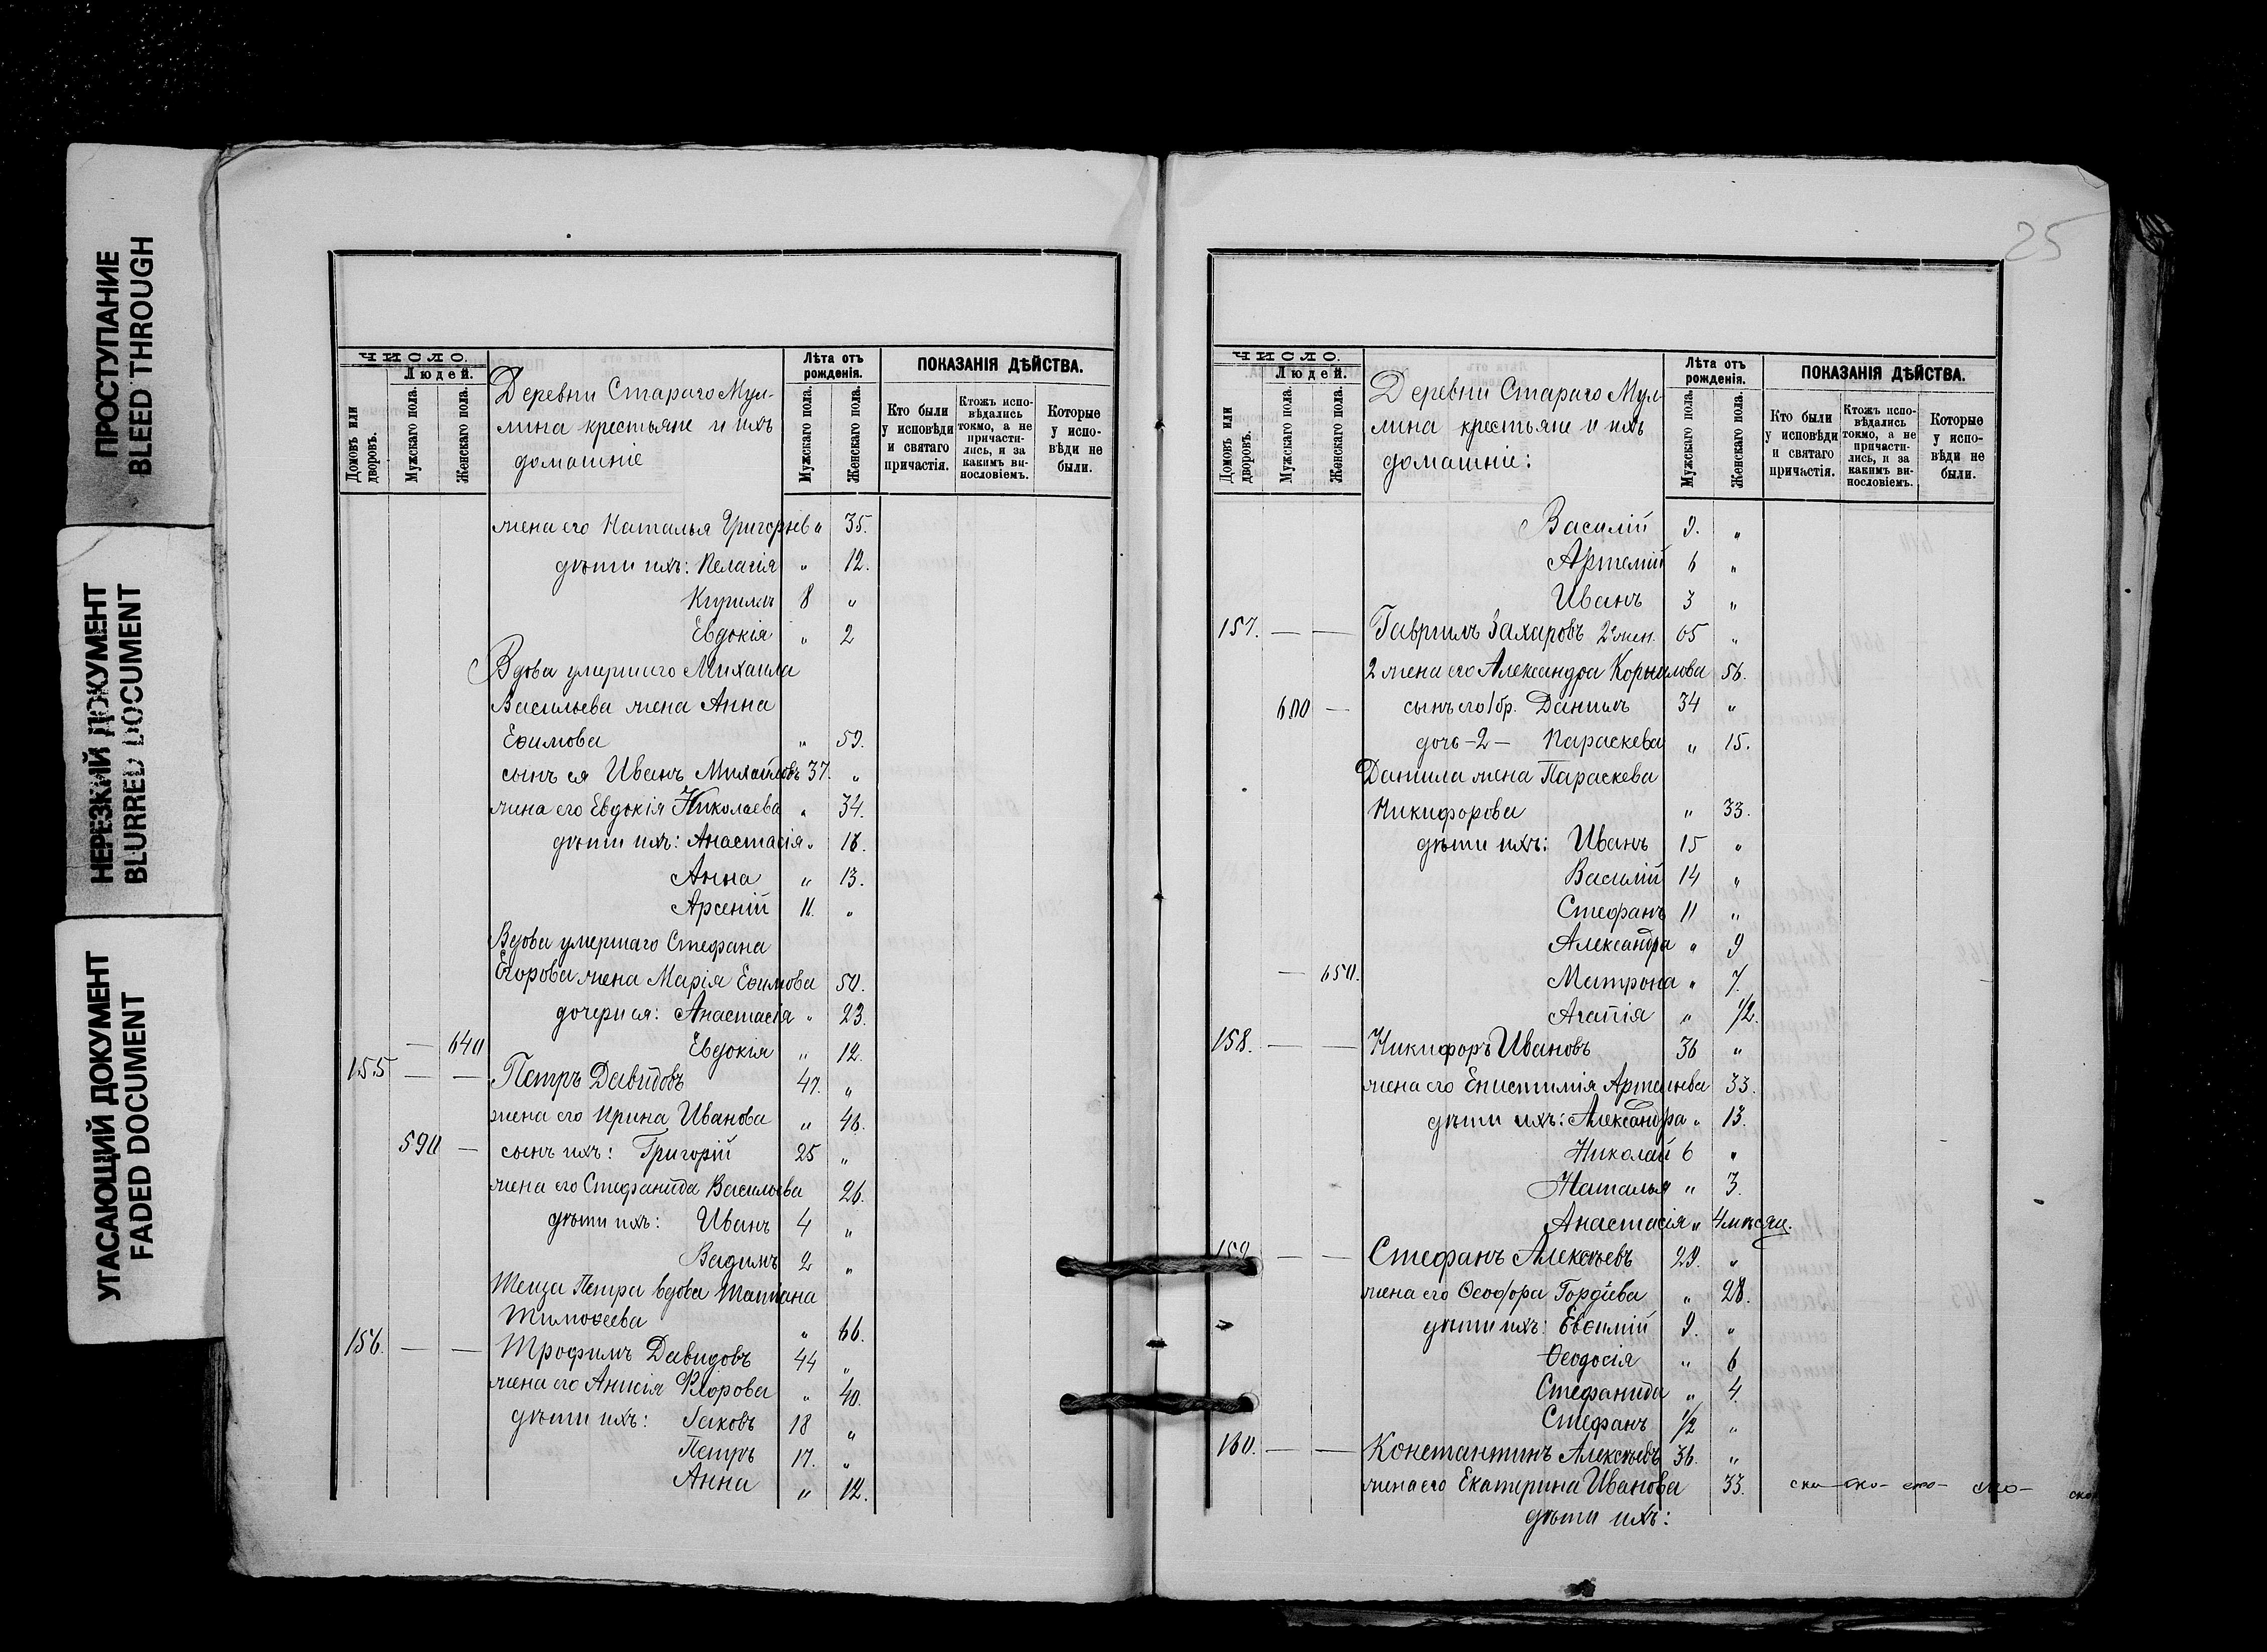 ПРОСТУПАНИЕ
BLEED THROUGH
НЕРЕЗКИЙ ДОКУМЕНТ
BLURRED DOCUMENT
УГАСАЮЩИЙ ДОКУМЕНТ
FADED DOCUMENT
ЧИСЛО.
Людей.
Домовъ или дворовъ.
Мужскаго пола.
Женскаго пола.
Деревни Стараго Мул-
лина крестьяне и ихъ
домашніе
Лѣта отъ
рожденія.
Мужскаго пола.
Женскаго пола.
ПОКАЗАНІЯ ДѢЙСТВА.
Кто были
у исповѣди
и святаго
причастія.
Ктожъ испо-
вѣдались
токмо, а не
причасти-
лись, и за
какимъ ви-
нословіемъ.
Которые
у испо-
вѣди не
были.
жена его Наталья Григорьева 35.
дѣти ихъ: Пелагія " 12.
Кириллъ 8 "
Евдокія " 2
Вдова умершаго Михаила
Васильева жена Анна
Ефимова " 59.
сынъ ея Иванъ Михайловъ 37. "
жена его Евдокія Николаева " 34.
дѣти ихъ: Анастасія " 18.
Анна " 13.
Арсеній 11. "
Вдова умершаго Стефана
Егорова жена Марія Еѳимова 50.
дочери ея: Анастасія " 23.
— 640 Евдокія " 12.
155 — — Петръ Давидовъ 47. "
жена его Ирина Иванова " 46.
590 — сынъ ихъ: Григорій 25 "
жена его Стефанида Васильева 26.
дѣти ихъ: Иванъ 4 "
Вадимъ 2 "
Теща Петра вдова Татіана
Тимоѳеева " 66.
156. — — Трофимъ Давидовъ 44 "
жена его Анисія Флорова " 40.
дѣти ихъ: Іаковъ 18 "
Петръ 17. "
Анна " 12.
25
ЧИСЛО.
Людей.
Домовъ или дворовъ.
Мужскаго пола.
Женскаго пола.
Деревни Стараго Мул-
лина крестьяне и ихъ
домашніе:
Лѣта отъ
рожденія.
Мужскаго пола.
Женскаго пола.
ПОКАЗАНІЯ ДѢЙСТВА.
Кто были
у исповѣди
и святаго
причастія.
Ктожъ испо-
вѣдались
токмо, а не
причасти-
лись, и за
какимъ ви-
нословіемъ.
Которые
у испо-
вѣди не
были.
Василій 9. "
Артемій 6 "
Иванъ 3 "
157. — — Гавриилъ Захаровъ 2 жен. 65 "
2 жена его Александра Корнилова 56.
600 — сынъ его 1 бр. Даниилъ 34 "
дочь -2- Параскева " 15.
Даниила жена Параскева
Никифорова " 33.
дѣти ихъ: Иванъ 15 "
Василій 14 "
Стефанъ 11 "
Александра " 9
— 650. Матрона " 7.
Агапія " 1/2.
158. — — Никифоръ Ивановъ 36 "
жена его Епистимія Артемьева 33.
дѣти ихъ: Александра " 13.
Николай 6 "
Наталья " 3.
Анастасія " 4 мѣсяц.
159. — — Стефанъ Алексѣевъ 29. "
жена его Ѳеодора Гордіева " 28.
дѣти ихъ: Евѳимій 9. "
Ѳеодосія " 6
Стефанида " 4.
Стефанъ 1/2 "
160. — — Константинъ Алексѣевъ 36. "
жена его Екатерина Иванова 33.
дѣти ихъ: